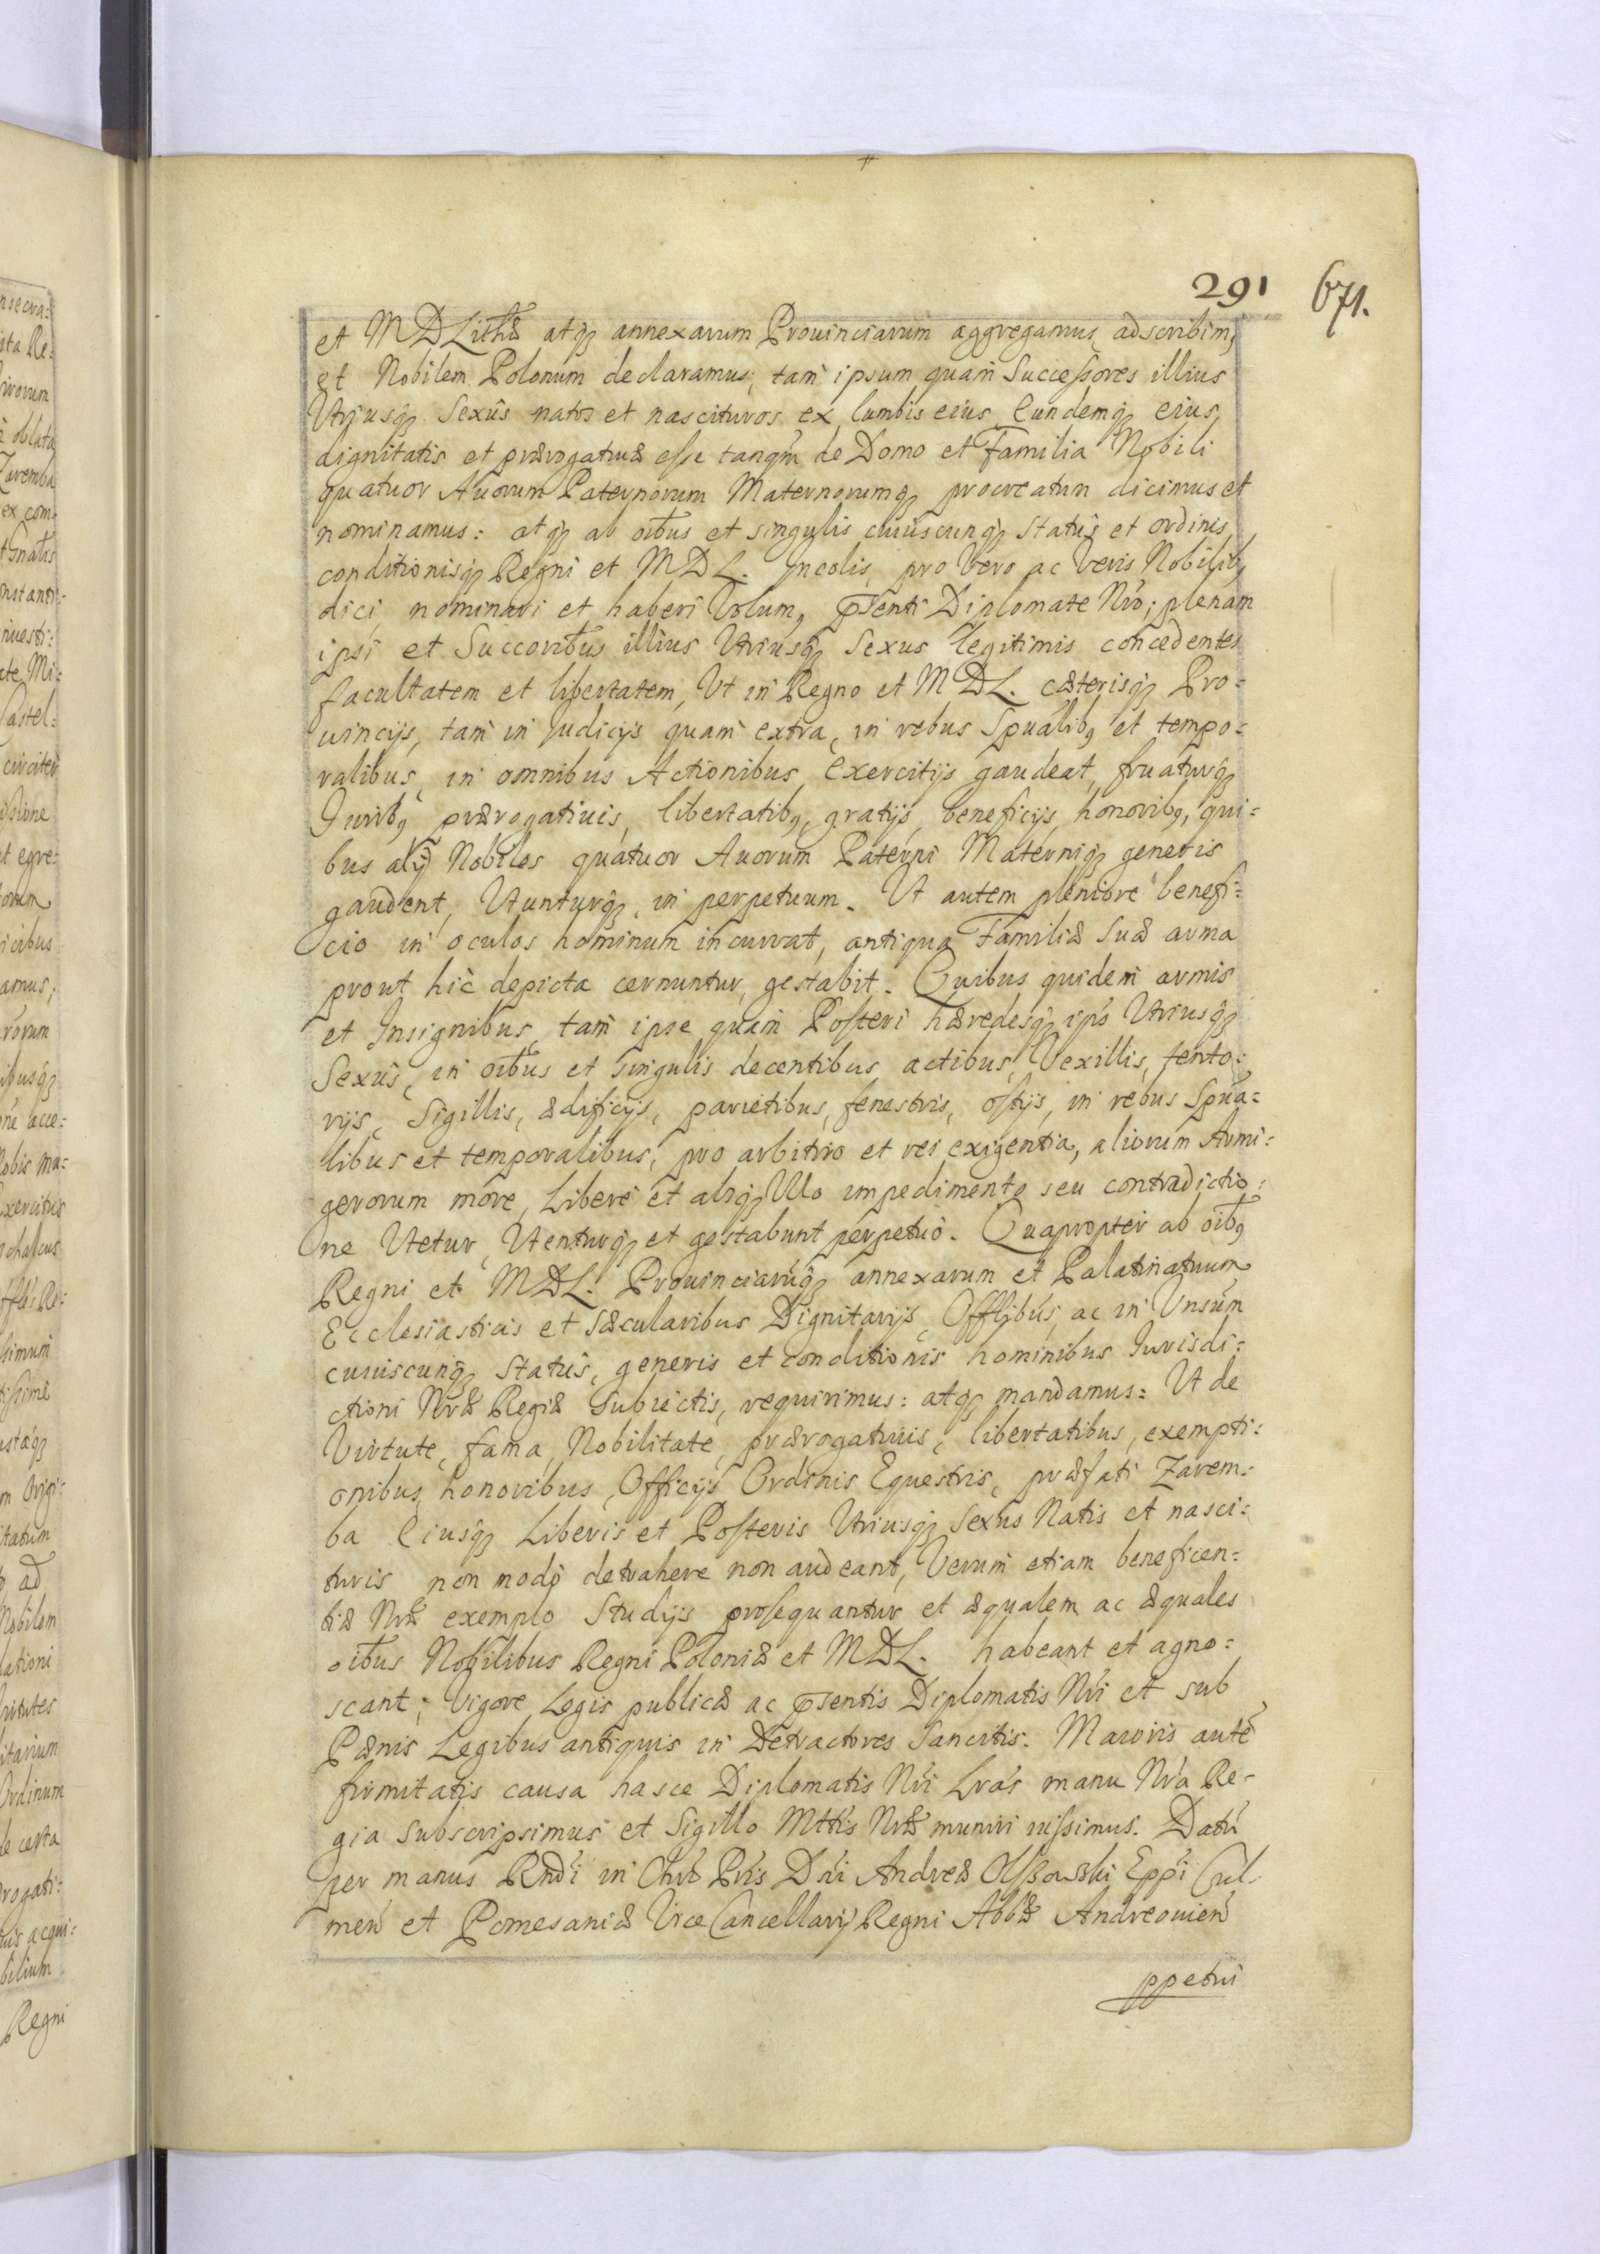 291 671.
et MDLithæ atq3 annexarum Prouinciarum aggregamus, adscribim9
et Nobilem Polonum declaramus, tam ipsum quam Successores illius
Vtriusq3 Sexûs natos et nascituros ex lumbis eius, Eundemq3 eius
dignitatis et prærogatiuæ esse tanqm̃ de Domo et Familia Nobili
quatuor Auorum Paternorum Maternorumq3 procreatun dicimus et
nominamus: atq3 ab oibus et singulis cuiuscunq3 statûs et ordinis,
conditionisq3 Regni et MDL. Incolis, pro Vero ac Veris Nobilib9
dici, nominari et haberi Volum9, pn̄senti Diplomate Nrō; plenam
ipsi et Succoribus illius Vtriusq3 Sexus legitimis concedentes
facultatem et libertatem, Vt in Regno et MDL. cæterisq3 Pro=
uincijs, tam in Iudicijs quam extra, in rebus Spualib9 et tempo=
ralibus, in omnibus Actionibus, Exercitijs gaudeat, fruaturq3
Iurib9 prærogatiuis, libertatib9, gratijs, beneficijs, honorib9, qui=
bus alij Nobiles quatuor Auorum Paterni Materniq3 generis
gaudent, Vtunturq3, in perpetuum. Vt autem pleniore benefi=
cio in oculos hominum incurrat, antiqua Familiæ suæ arma
prout hic depicta cernuntur, gestabit. Quibus quidem armis
et Insignibus, tam ipse quam Posteri hæredesq3 ips9 Vtriusq3
Sexûs, in oibus et singulis decentibus actibus, Vexillis, tento=
rijs, Sigillis, ædificijs, parietibus, fenestris, ostijs, in rebus Spua=
libus et temporalibus, pro arbitrio et rei exigentia, aliorum Armi=
gerorum more, Liberè et absq3 Vllo impedimento seu contradictio=
ne Vtetur, Vtenturq3 et gestabunt perpetuò. Quapropter ab oib9
Regni et MDL. Prouinciarũq3 annexarum et Palatinatuum
Ecclesiasticis et sæcularibus Dignitarijs, Offlibus, ac in Vnsum
cuiuscunq3 statûs, generis et conditionis hominibus Iurisdi=
ctioni Nræ Regiæ subiectis, requirimus: atq3 mandamus: Vt de
Virtute, fama, Nobilitate, prærogatiuis, libertatibus, exempti=
onibus, honoribus, Officijs Ordinis Equestris, præfati Zarem=
ba Eiusq3 Liberis et Posteris Vtriusq3 sexûs Natis et nasci=
turis non modo detrahere non audeant, Verum etiam beneficen=
tiæ Nræ exemplo Studijs prosequantur et æqualem ac æquales
oibus Nobilibus Regni Poloniæ et MDL. habeant et agno=
scant; vigore Legis publicæ ac pn̄sentis Diplomatis Nri et sub
Pænis Legibus antiquis in Detractores sancitis. Maioris autẽ
firmitatis causa hasce Diplomatis Nri Lras manu Nra Re=
gia subscripsimus et Sigillo Mttis Nræ muniri iussimus. Datũ
per manus Rndi in Chro Pris Dni Andreæ Olszowski Eppi Cul
men et Pomesaniæ Vice Cancellarij Regni Abbis Andreouien
ppetui